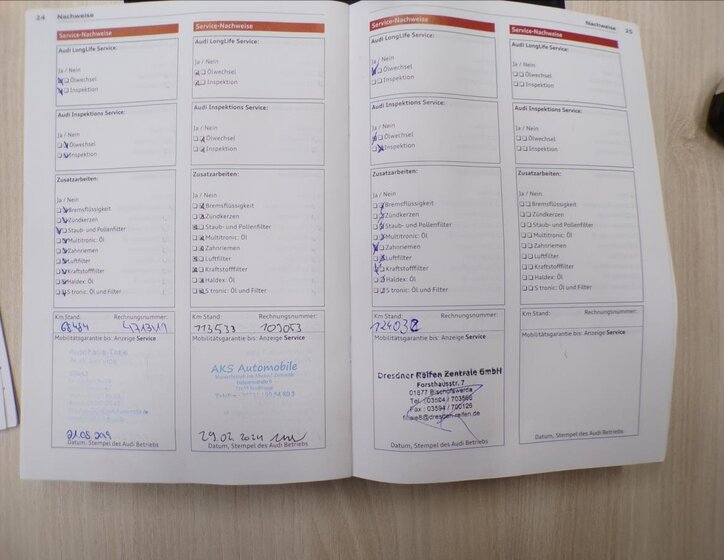 24 Nachweise
Service-Nachweise
Audi LongLife Service:
Ja / Nein
Ölwechsel
Inspektion
Audi Inspektions Service:
Ja / Nein
Ölwechsel
Inspektion
Zusatzarbeiten:
Ja / Nein
Bremsflüssigkeit
Zündkerzen
Staub- und Pollenfilter
Multitronic: Öl
Zahnriemen
Luftfilter
Kraftstofffilter
Haldex: Öl
S tronic: Öl und Filter
Km Stand: Rechnungsnummer:
68484
Mobilitätsgarantie bis: Anzeige Service
Datum, Stempel des Audi Betriebs
Service-Nachweise
Audi LongLife Service:
Ja / Nein
Ölwechsel
Inspektion
Audi Inspektions Service:
Ja / Nein
Ölwechsel
Inspektion
Zusatzarbeiten:
Ja / Nein
Bremsflüssigkeit
Zündkerzen
Staub- und Pollenfilter
Multitronic: Öl
Zahnriemen
Luftfilter
Kraftstofffilter
Haldex: Öl
S tronic: Öl und Filter
Km Stand: Rechnungsnummer:
113533 109053
Mobilitätsgarantie bis: Anzeige Service
AKS Automobile
29.02.2024
Datum, Stempel des Audi Betriebs
Nachweise 25
Service-Nachweise
Audi LongLife Service:
Ja / Nein
Ölwechsel
Inspektion
Audi Inspektions Service:
Ja / Nein
Ölwechsel
Inspektion
Zusatzarbeiten:
Ja / Nein
Bremsflüssigkeit
Zündkerzen
Staub- und Pollenfilter
Multitronic: Öl
Zahnriemen
Luftfilter
Kraftstofffilter
Haldex: Öl
S tronic: Öl und Filter
Km Stand: Rechnungsnummer:
124032
Mobilitätsgarantie bis: Anzeige Service
Dresdner Reifen Zentrale GmbH
Forsthausstr. 7
01877 Bischofswerda
Tel.: 03594 / 703586
Fax : 03594 / 700126
filiale8@dresden-reifen.de
Datum, Stempel des Audi Betriebs
Service-Nachweise
Audi LongLife Service:
Ja / Nein
Ölwechsel
Inspektion
Audi Inspektions Service:
Ja / Nein
Ölwechsel
Inspektion
Zusatzarbeiten:
Ja / Nein
Bremsflüssigkeit
Zündkerzen
Staub- und Pollenfilter
Multitronic: Öl
Zahnriemen
Luftfilter
Kraftstofffilter
Haldex: Öl
S tronic: Öl und Filter
Km Stand: Rechnungsnummer:
Mobilitätsgarantie bis: Anzeige Service
Datum, Stempel des Audi Betriebs